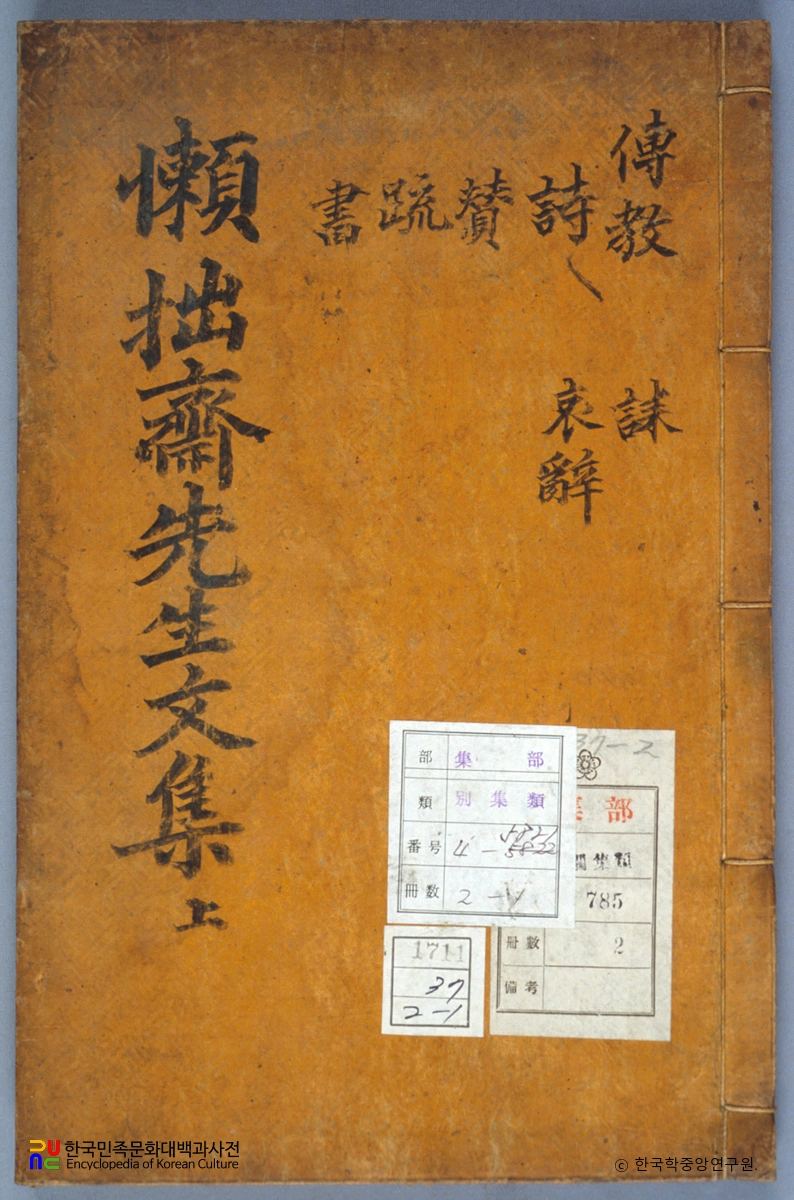 傳教
誄
詩
哀辭
賛
䟽
書
懶拙齋先生文集 上
部 集部
類 別集類
番号 4-5821
5822
冊数 2-1
37-2
部
785
冊數 2
備考
1711
37
2-1
한국민족문화대백과사전
Encyclopedia of Korean Culture
ⓒ 한국학중앙연구원.